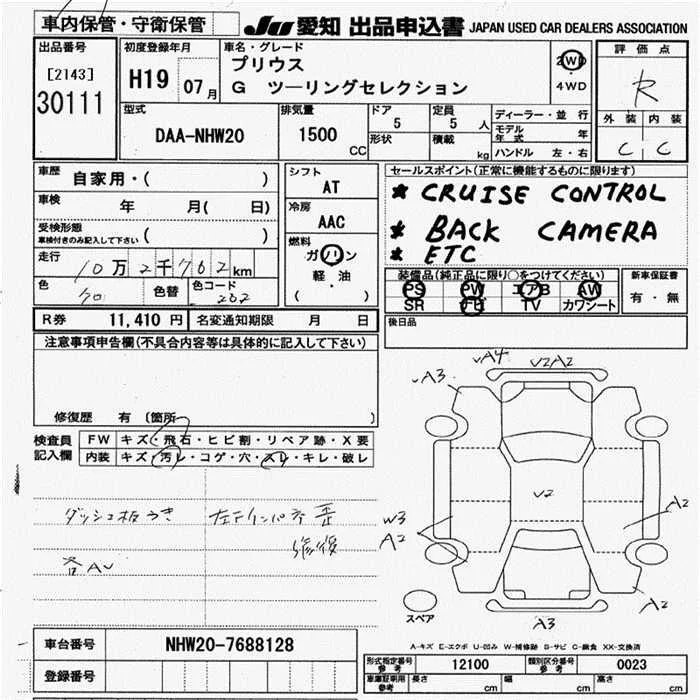 車内保管・守衛保管
JU 愛知 出品申込書 JAPAN USED CAR DEALERS ASSOCIATION
出品番号
[2143]
30111
初度登録年月
H19 07月
車名・グレード
プリウス
G ツーリングセレクション
2WD
4WD
評価点
R
外装 内装
C C
型式
DAA-NHW20
排気量
1500 CC
ドア
5
形状
定員
5 人
積載
kg
ディーラー・並行
モデル年式 年
ハンドル 左・右
車歴 自家用・( )
車検 年 月( 日)
受検形態
車検付きのみ記入して下さい ( )
走行 10万2千762km
色 色替 色コード
202
シフト
AT
冷房
AAC
燃料
ガソリン
軽・油
( )
セールスポイント(正常に機能するものに限ります)
* CRUISE CONTROL
* BACK CAMERA
* ETC
装備品(純正品に限り○をつけてください)
PS PW エアB AW
SR ナビ TV カワシート
新車保証書
有・無
後日品
R券 11,410 円 名変通知期限 月 日
注意事項申告欄(不具合内容等は具体的に記入して下さい)
修復歴 有 〔箇所 〕
検査員記入欄
FW キズ・飛石・ヒビ割・リペア跡・X要
内装 キズ・汚レ・コゲ・穴・スレ・キレ・破レ
ダッシュ板うき
各AU
修復
A3
A4
V2A2
V2
W3
A2
A2
A2
A3
スペア
A-キズ E-エクボ U-凹み W-補修跡 S-サビ C-腐食 XX-交換済
車台番号 NHW20-7688128
登録番号
形式指定番号 参考 12100 類別区分番号 参考 0023
車庫証明用 参考 長さ cm 幅 cm 高さ cm